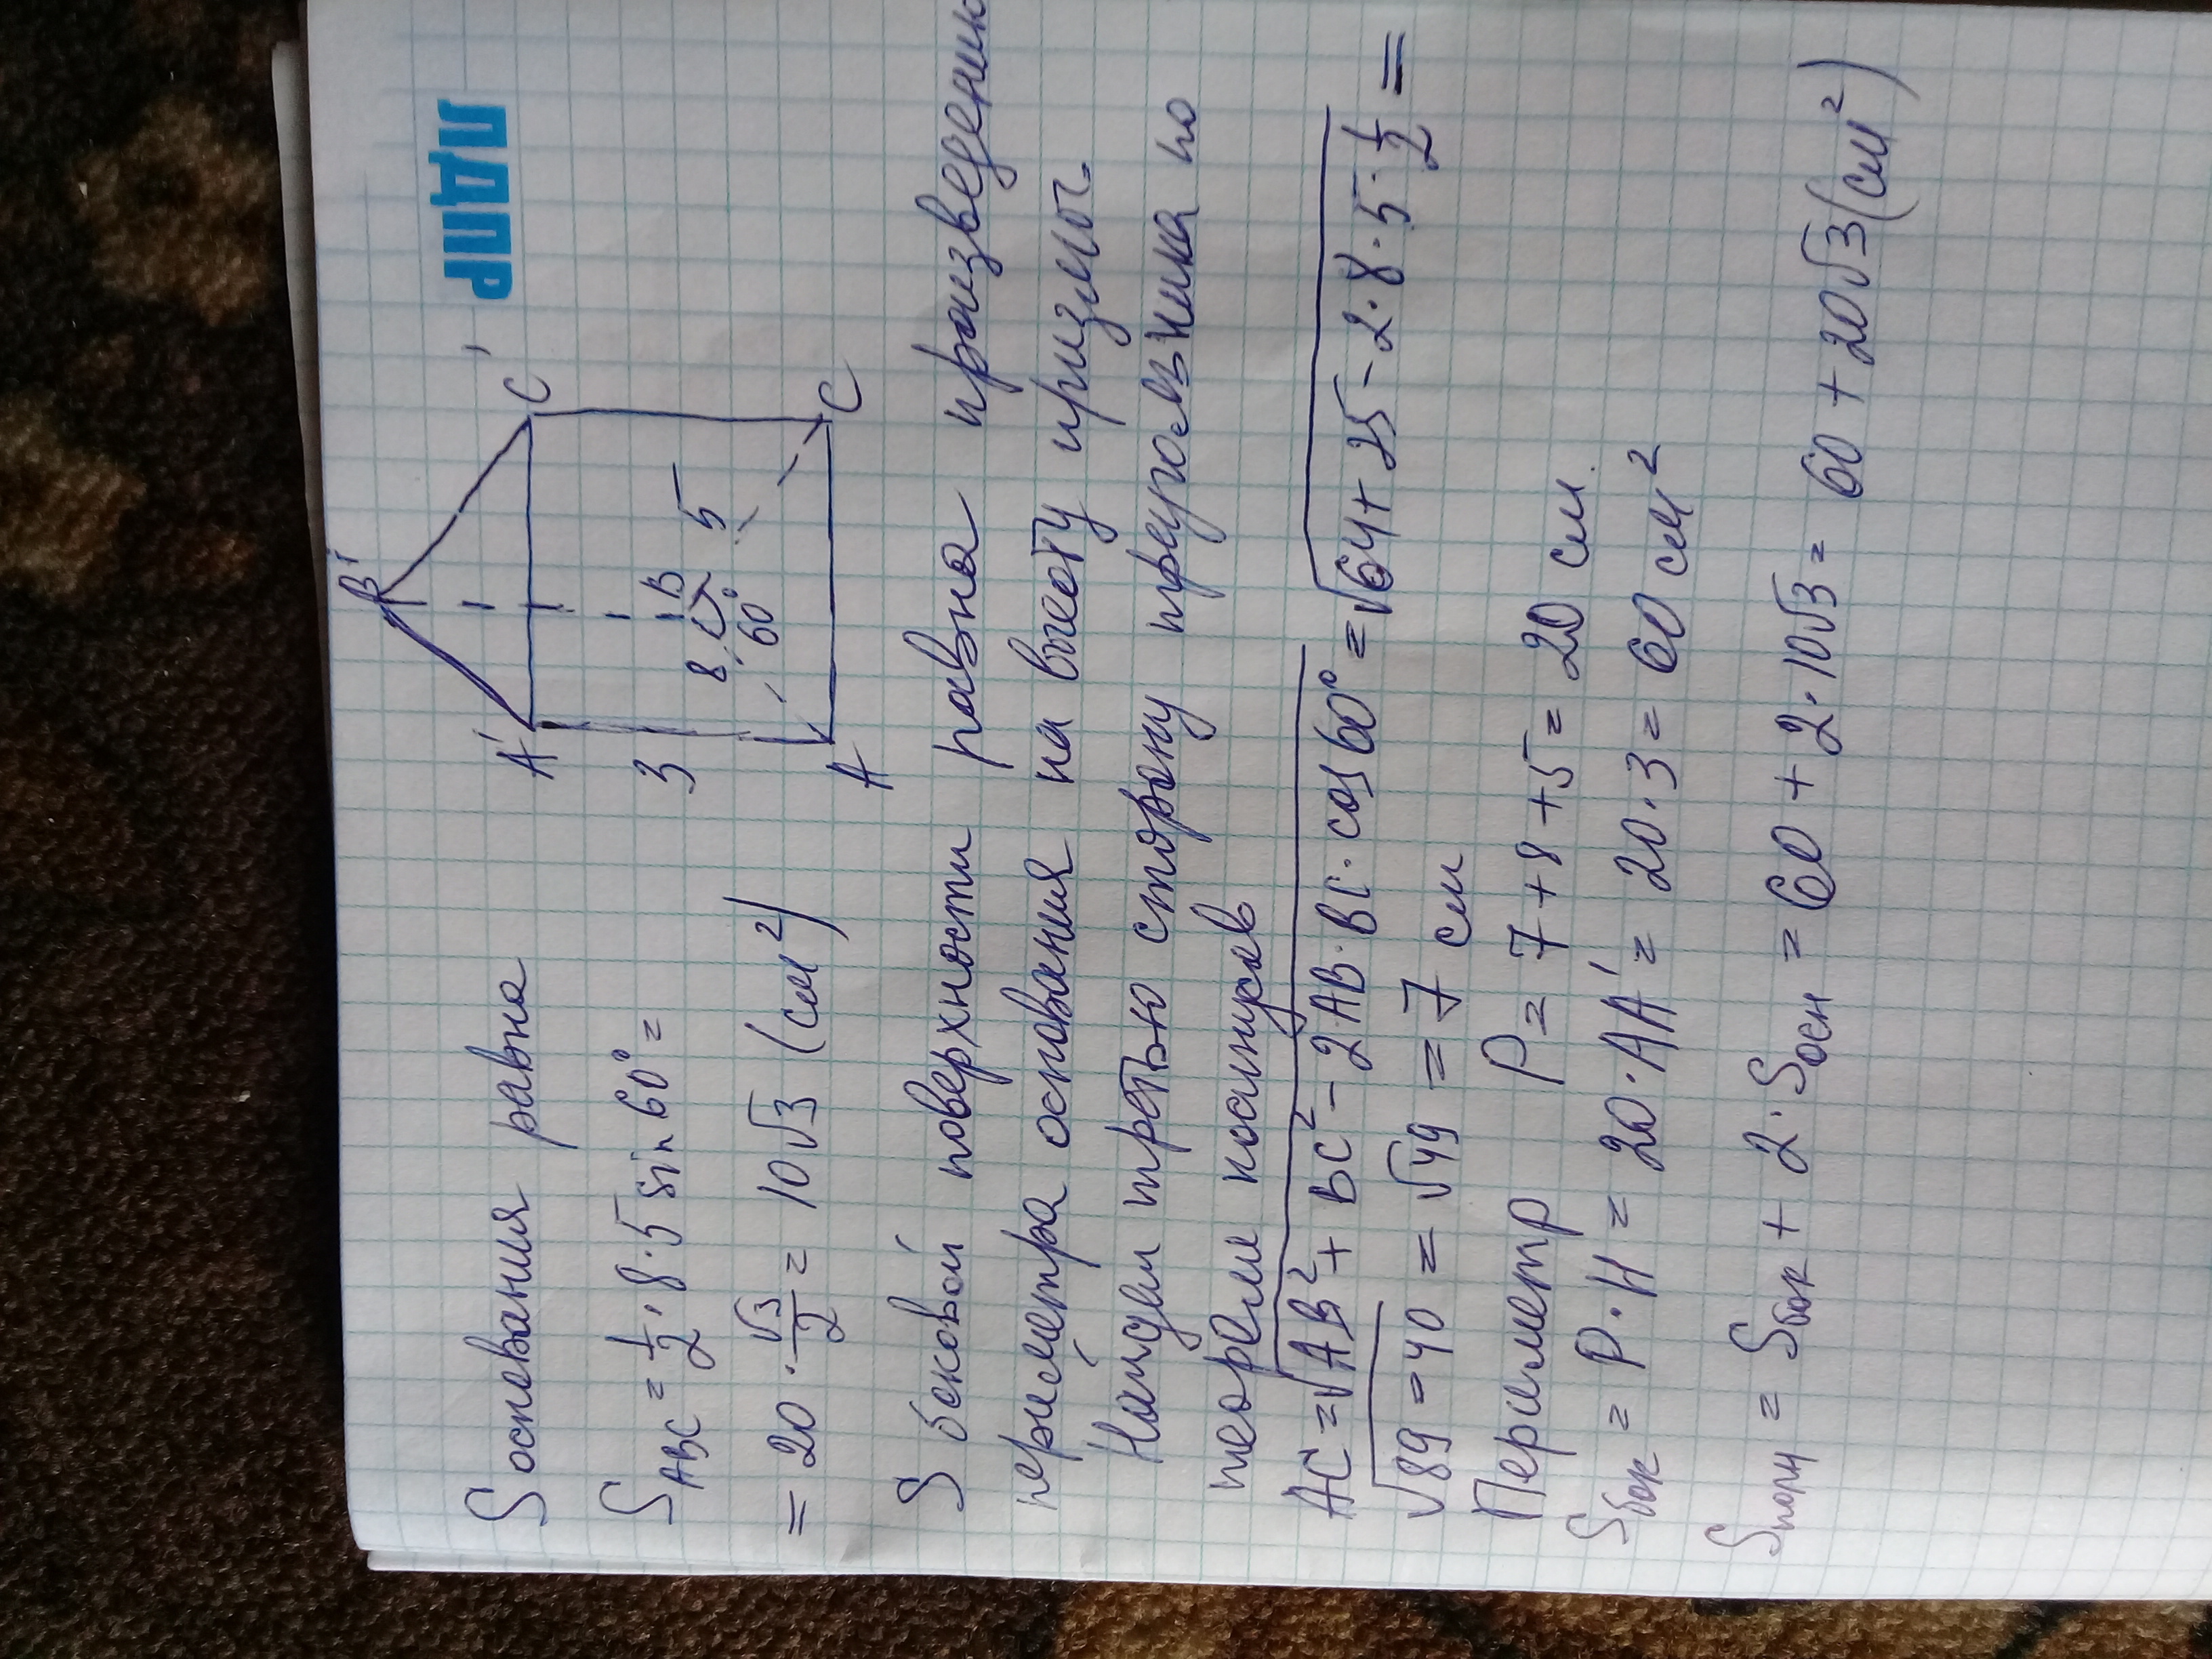 B'
A'
C'
ЛДПР
S основания равна
S ABC = 1/2 · 8 · 5 sin 60° =
3
B
8
5
60°
= 20 · √3/2 = 10√3 (см²)
A
C
S боковой поверхности равна произведению
периметра основания на высоту призмы.
Найдем третью сторону треугольника по
теореме косинусов
AC = √(AB² + BC² - 2AB · BC · cos 60°) = √(64 + 25 - 2 · 8 · 5 · 1/2) =
√(89 - 40) = √49 = 7 см
Периметр P = 7 + 8 + 5 = 20 см.
S бок = P · H = 20 · AA' = 20 · 3 = 60 см²
S полн = S бок + 2 · S осн = 60 + 2 · 10√3 = 60 + 20√3 (см²)